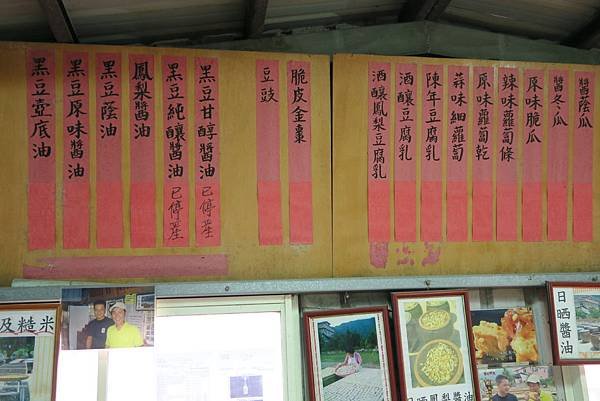 醬蔭瓜
醬冬瓜
原味脆瓜
辣味蘿蔔條
原味蘿蔔乾
蒜味細蘿蔔
陳年豆腐乳
酒釀豆腐乳
酒釀鳳梨豆腐乳
脆皮金棗
豆豉
黑豆甘醇醬油已停產
黑豆純釀醬油已停產
鳳梨醬油
黑豆蔭油
黑豆原味醬油
黑豆壺底油
及糙米
日晒鳳梨醬油
日晒醬油